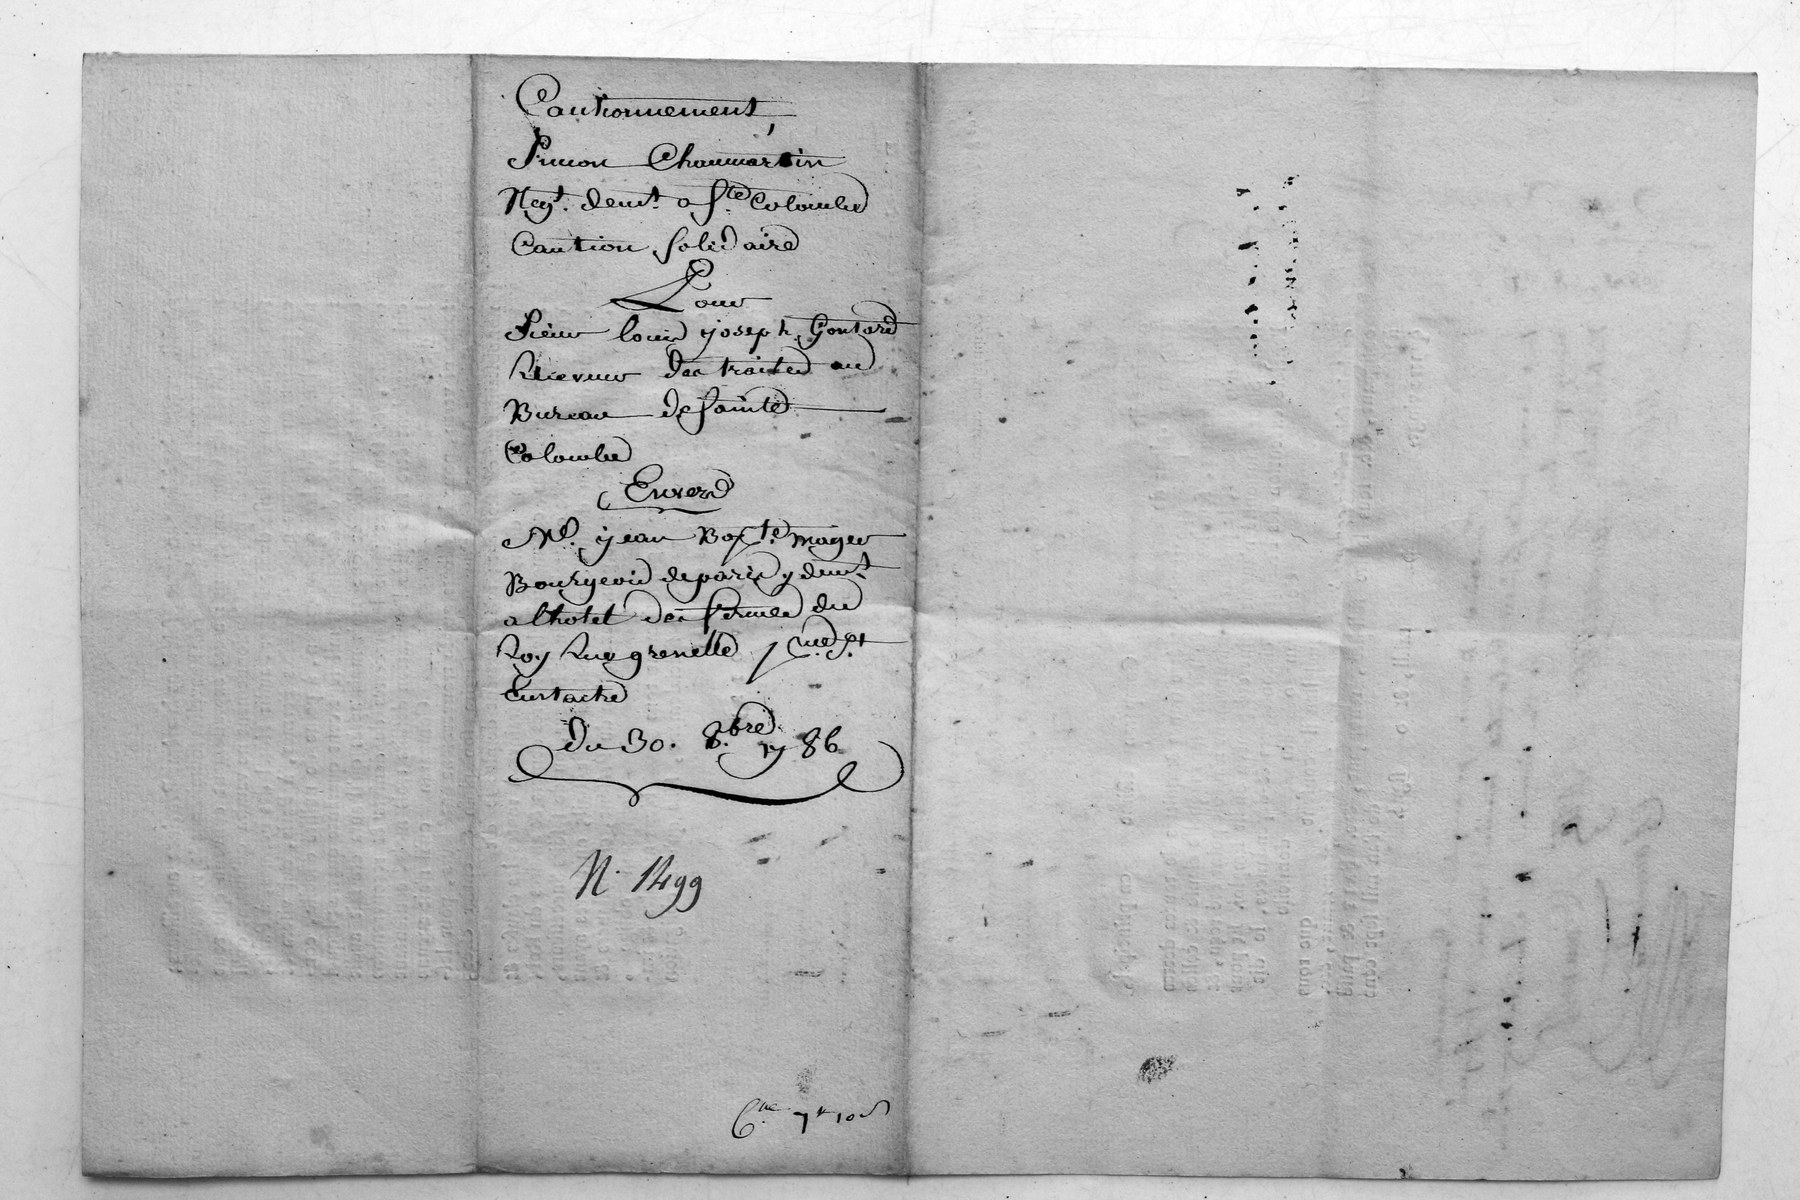 Cautionnement,
Simon Chaumartin
Negt. demt. a Ste Colombe
Caution solidaire
Pour
Sieur louis joseph Gontard
Receveur des traites au
Bureau de sainte
Colombe
Envers
Me. jean Bapte. mager
Bourgeois de paris y demt.
a lhotel des fermes du
Roy Rue grenelle St
Eustache
Du 30. 8.bre 1786
N. 1499